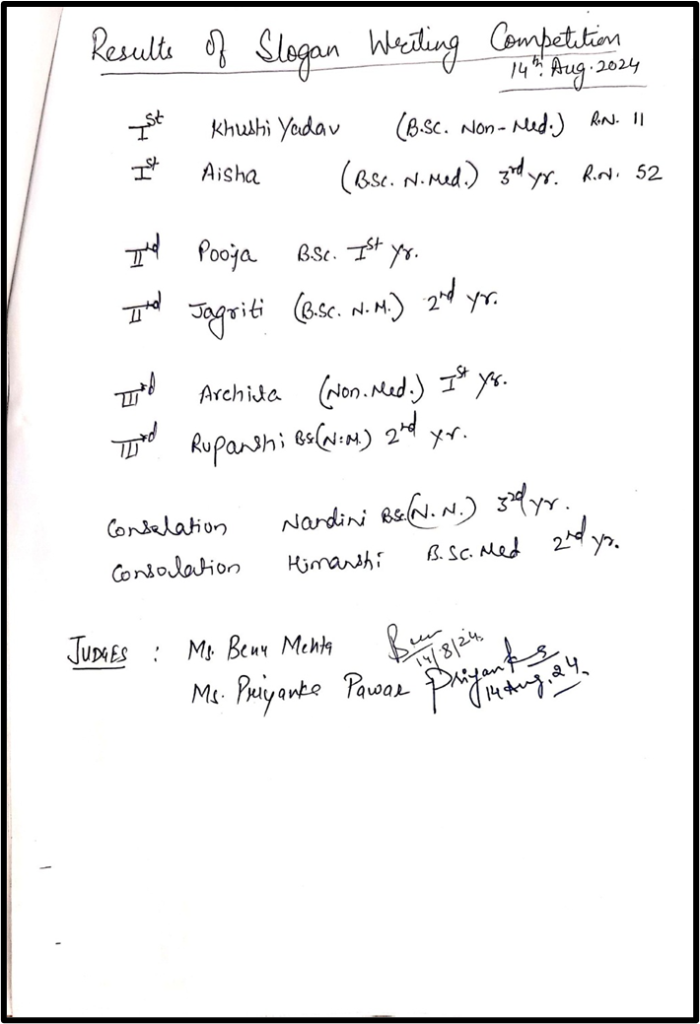 Results of Slogan Writing Competition
14th Aug. 2024
Ist Khushi Yadav (B.Sc. Non-Med.) R.N. 11
Ist Aisha (BSc. N.Med.) 3rd yr. R.N. 52
IInd Pooja B.Sc. Ist Yr.
IInd Jagriti (B.Sc. N.M.) 2nd yr.
IIIrd Archita (Non. Med.) Ist Yr.
IIIrd Rupanshi BSc(N.M.) 2nd yr.
Consolation Nandini BSc(N.N.) 3rd yr.
Consolation Himanshi B.Sc. Med 2nd yr.
JUDGES : Ms. Benu Mehta 14/8/24.
Ms. Priyanka Pawar Priyanka 14 Aug. 24.